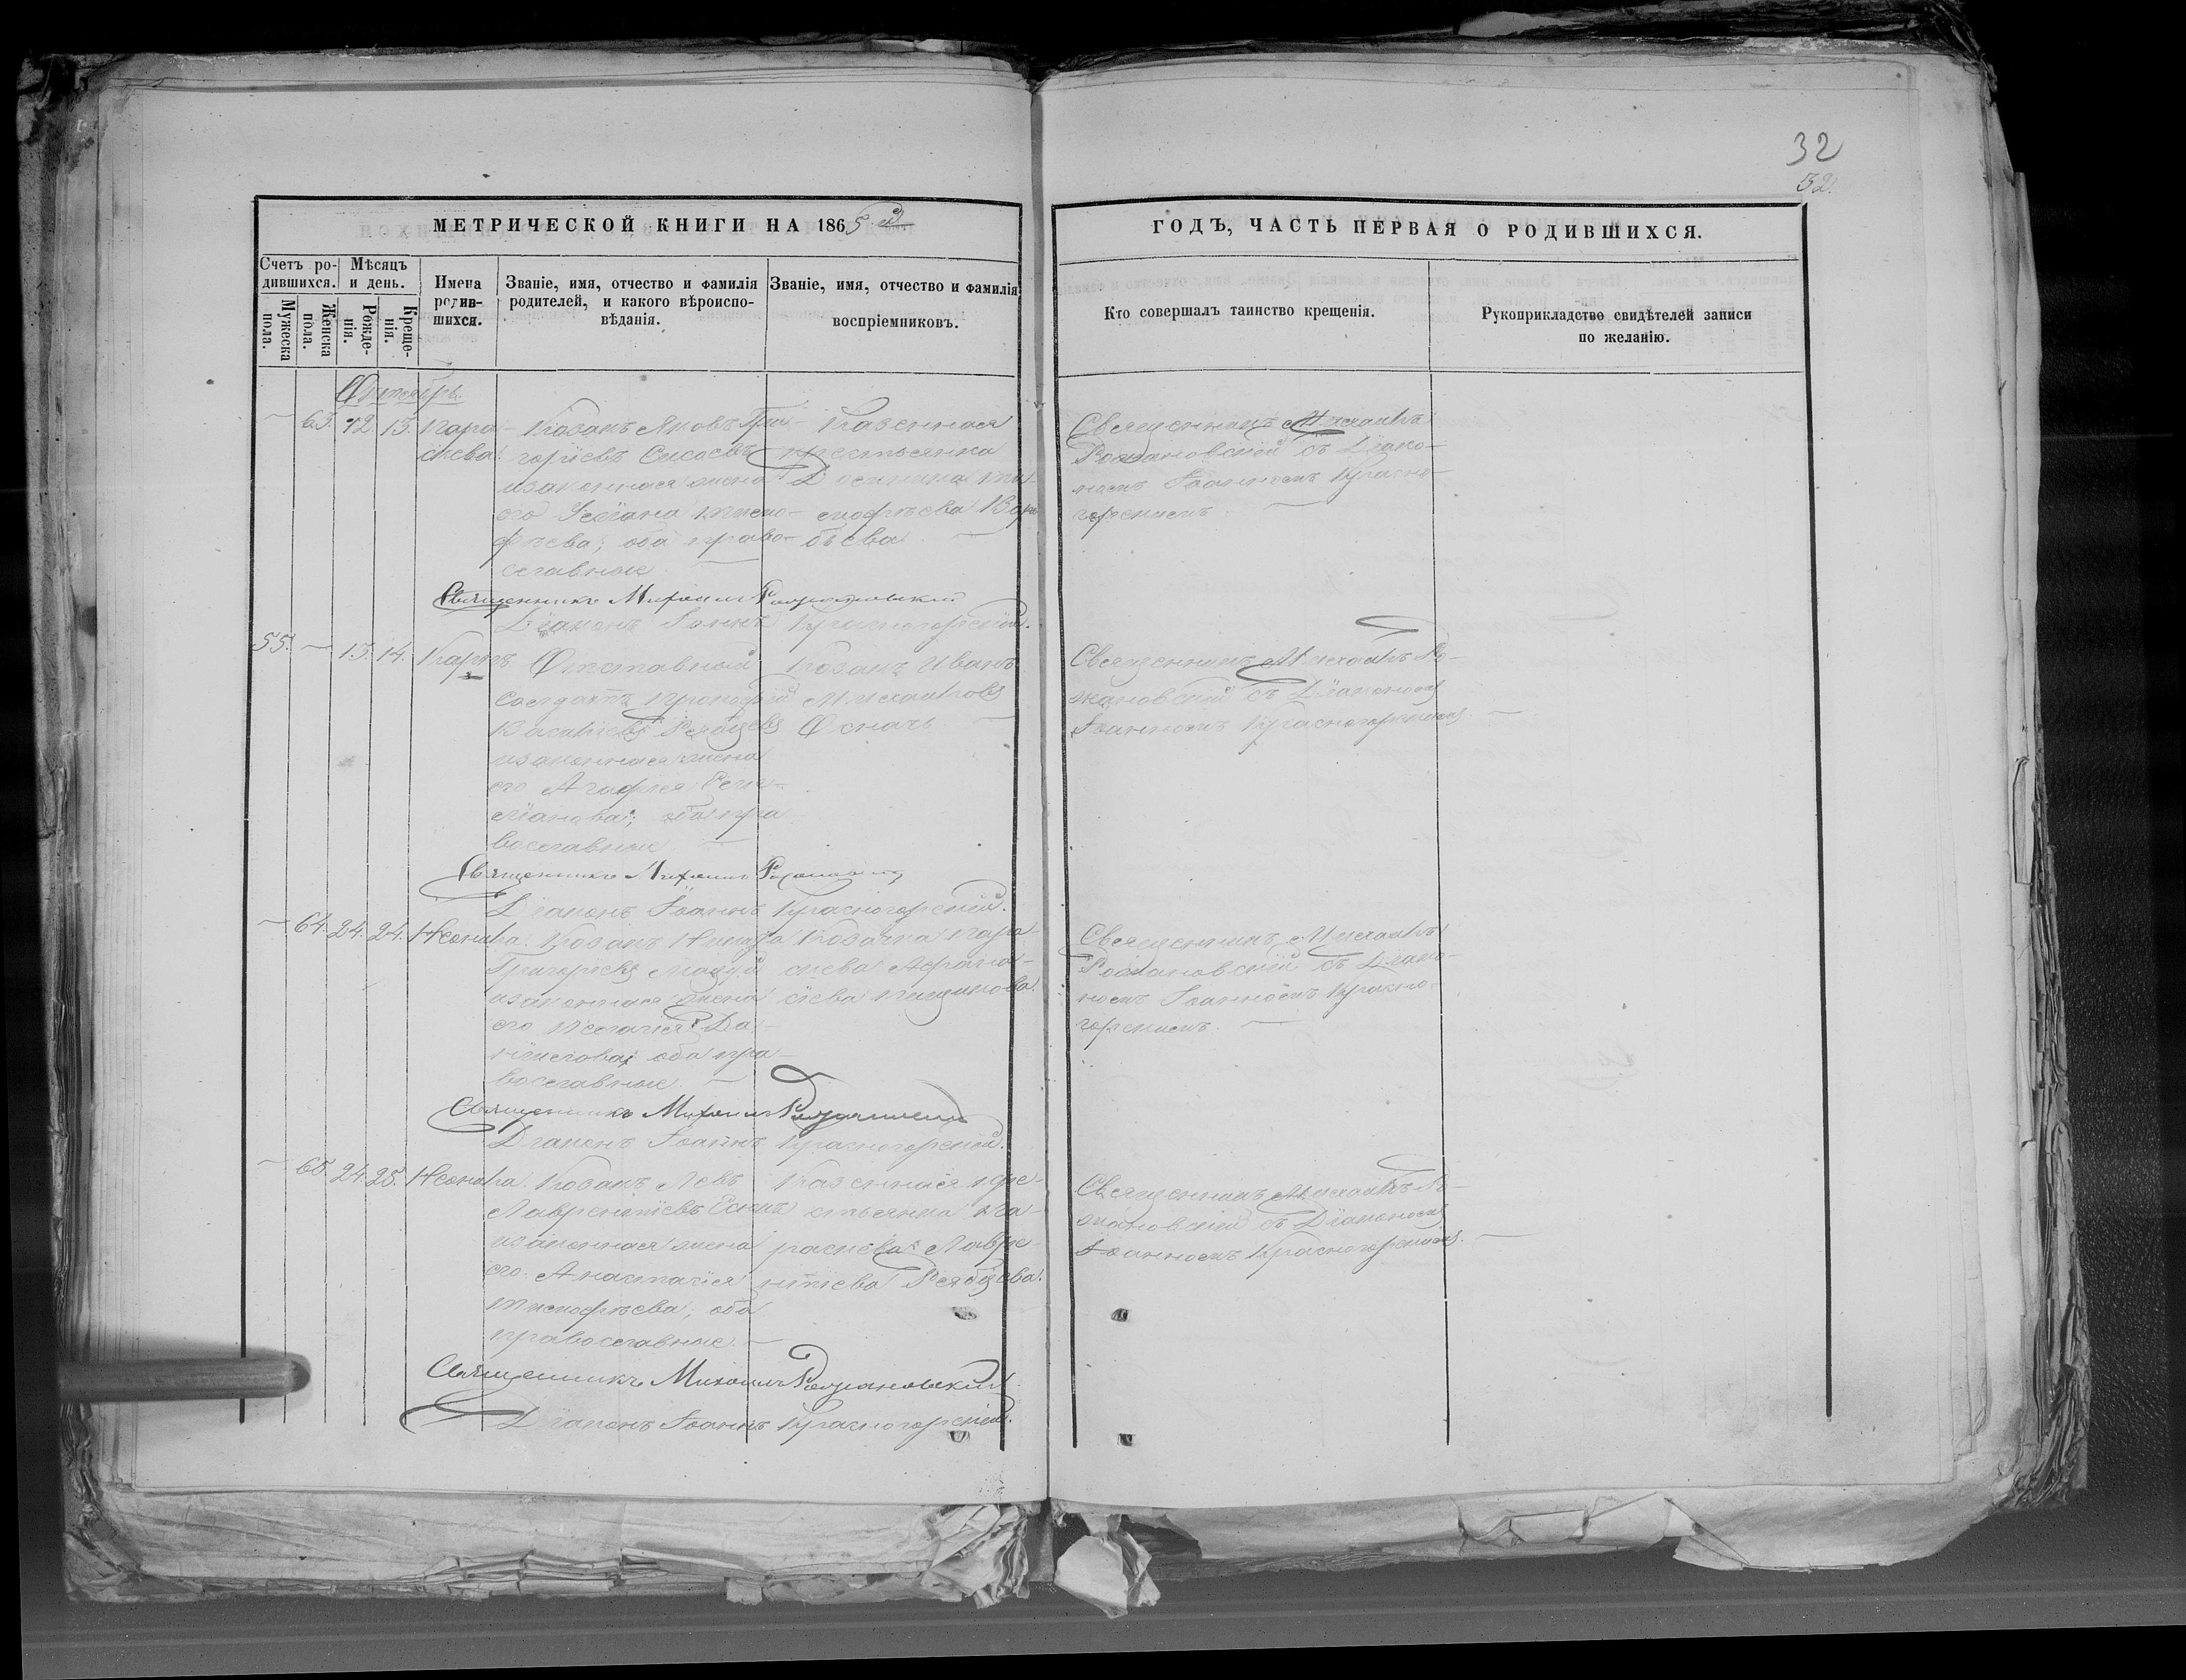 32
32.
МЕТРИЧЕСКОЙ КНИГИ НА 1865 й
ГОДЪ, ЧАСТЬ ПЕРВАЯ О РОДИВШИХСЯ.
Счетъ ро-
дившихся.
Мужеска
пола.
Женска
пола.
Мѣсяцъ
и день.
Рожде-
нія.
Креще-
нія.
Имена
родив-
шихся.
Званіе, имя, отчество и фамилія
родителей, и какого вѣроиспо-
вѣданія.
Званіе, имя, отчество и фамилія
воспріемниковъ.
Кто совершалъ таинство крещенія.
Рукоприкладство свидѣтелей записи
по желанію.
Октябрь.
— 63. 12. 13. Пара-
скева.
Козакъ Яковъ Гри-
горіевъ
и законная жена
его Тимо-
фѣева; оба право-
славные. —
Казенная
крестьянка
Тимофѣева
Священникъ Михаилъ
Рожановскій съ Діако-
номъ Іоанномъ Красно-
горскимъ. —
Священникъ Михаилъ Рожановскій
Діаконъ Іоаннъ Красногорскій.
55. — 13. 14. Карпъ
Отставный
солдатъ Прокофій
Рябцевъ
и законная жена
его Агафія Семе-
оба пра
вославные. —
Козакъ Иванъ
Михаиловъ
—
Священникъ Михаилъ Ро-
жановскій съ Діакономъ
Іоанномъ Красногорскимъ. —
Священникъ Михаилъ Рожановскій
Діаконъ Іоаннъ Красногорскій.
— 64. 24. 24. Неонила.
Козакъ Никита
Григорьевъ
и законная жена
его Пелагія Да-
ніилова; оба пра-
вославные. —
Козачка Пара-
скева Афана-
сіева
Священникъ Михаилъ
Рожановскій съ Діако-
номъ Іоанномъ Красно-
горскимъ. —
Священникъ Михаилъ Рожановскій
Діаконъ Іоаннъ Красногорскій.
— 65. 24. 25. Неонила.
Козакъ Левъ
Лаврентіевъ
и законная жена
его Анастасія
Тимофѣева; оба
православные. —
Казенная кре-
стьянка Па-
раскева Лавре-
нтіева Рябцева.
Священникъ Михаилъ Ро-
жановскій съ Діакономъ
Іоанномъ Красногорскимъ. —
Священникъ Михаилъ Рожановскій
Діаконъ Іоаннъ Красногорскій.